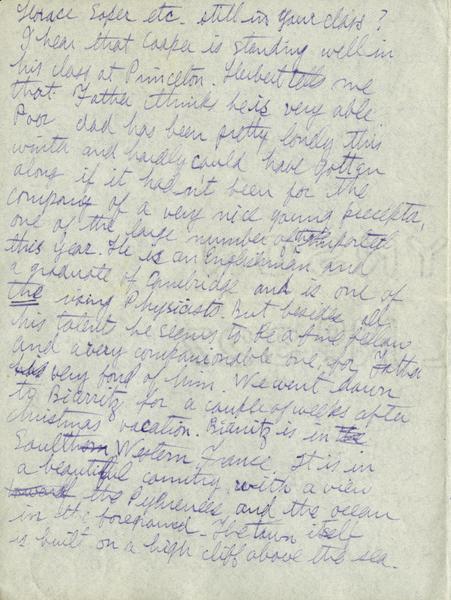 Horace Soper etc. still in your class?
I hear that Cooper is standing well in
his class at Princeton. Herbert tells me
that Father thinks he is very able.
Poor dad has been pretty lonely this
winter and hardly could have gotten
along if it hadn't been for the
company of a very nice young preceptor,
one of the large number of imported
this year. He is an Englishman and
a graduate of Cambridge and is one of
the rising Physicists. But besides all
his talent he seems to be a fine fellow
and a very companionable one, for Father
is very fond of him. We went down
to Biarritz for a couple of weeks after
christmas vacation. Biarritz is in the
South Western France. It is in
a beautiful country, with a view
toward the Pyhrenees and the ocean
in the foreground. The town itself
is built on a high cliff above the sea.